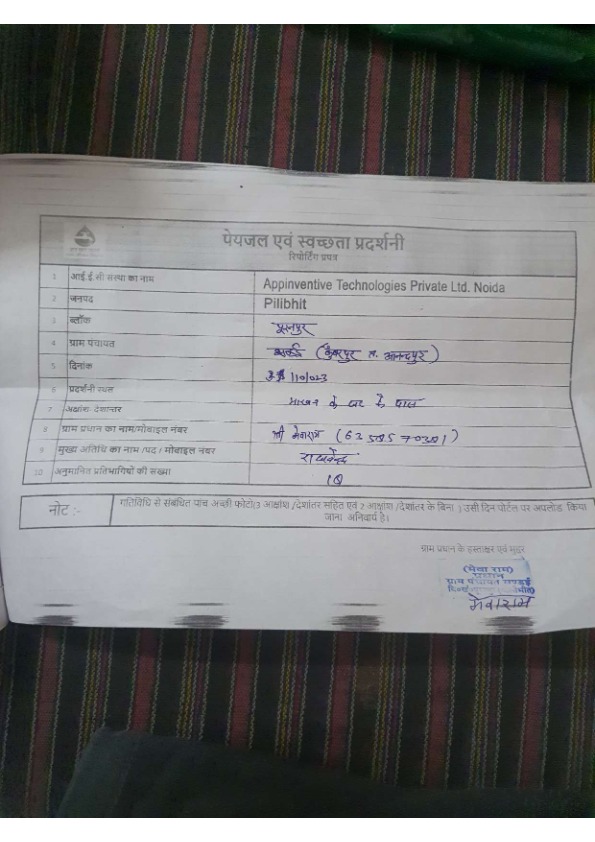 पेयजल एवं स्वच्छता प्रदर्शनी
रिपोर्टिंग प्रपत्र
1 आई.ई.सी संस्था का नाम Appinventive Technologies Private Ltd. Noida
2 जनपद Pilibhit
3 ब्लॉक पूरनपुर
4 ग्राम पंचायत
5 दिनांक
6 प्रदर्शनी स्थल के घर के पास
7 अक्षांश देशान्तर
8 ग्राम प्रधान का नाम/मोबाइल नंबर श्री मेवाराम
9 मुख्य अतिथि का नाम /पद / मोबाइल नंबर
10 अनुमानित प्रतिभागियों की संख्या 10
नोट :- गतिविधि से संबंधित पांच अच्छी फोटो(3 आक्षांश /देशांतर सहित एवं 2 आक्षांश /देशांतर के बिना ) उसी दिन पोर्टल पर अपलोड किया
जाना अनिवार्य है।
ग्राम प्रधान के हस्ताक्षर एवं मुहर
(मेवा राम)
प्रधान
ग्राम पंचायत
मेवाराम